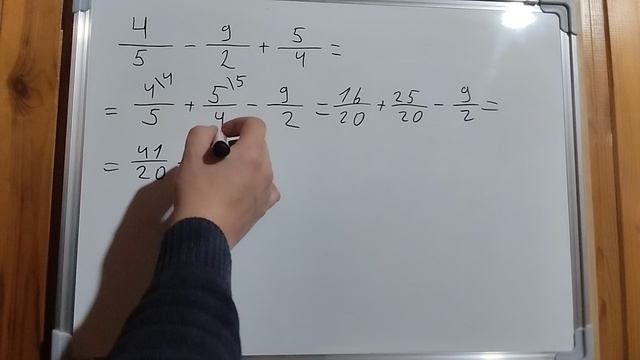 4/5 - 9/2 + 5/4 =
= 4\4/5 + 5\5/4 - 9/2 = 16/20 + 25/20 - 9/2 =
= 41/20